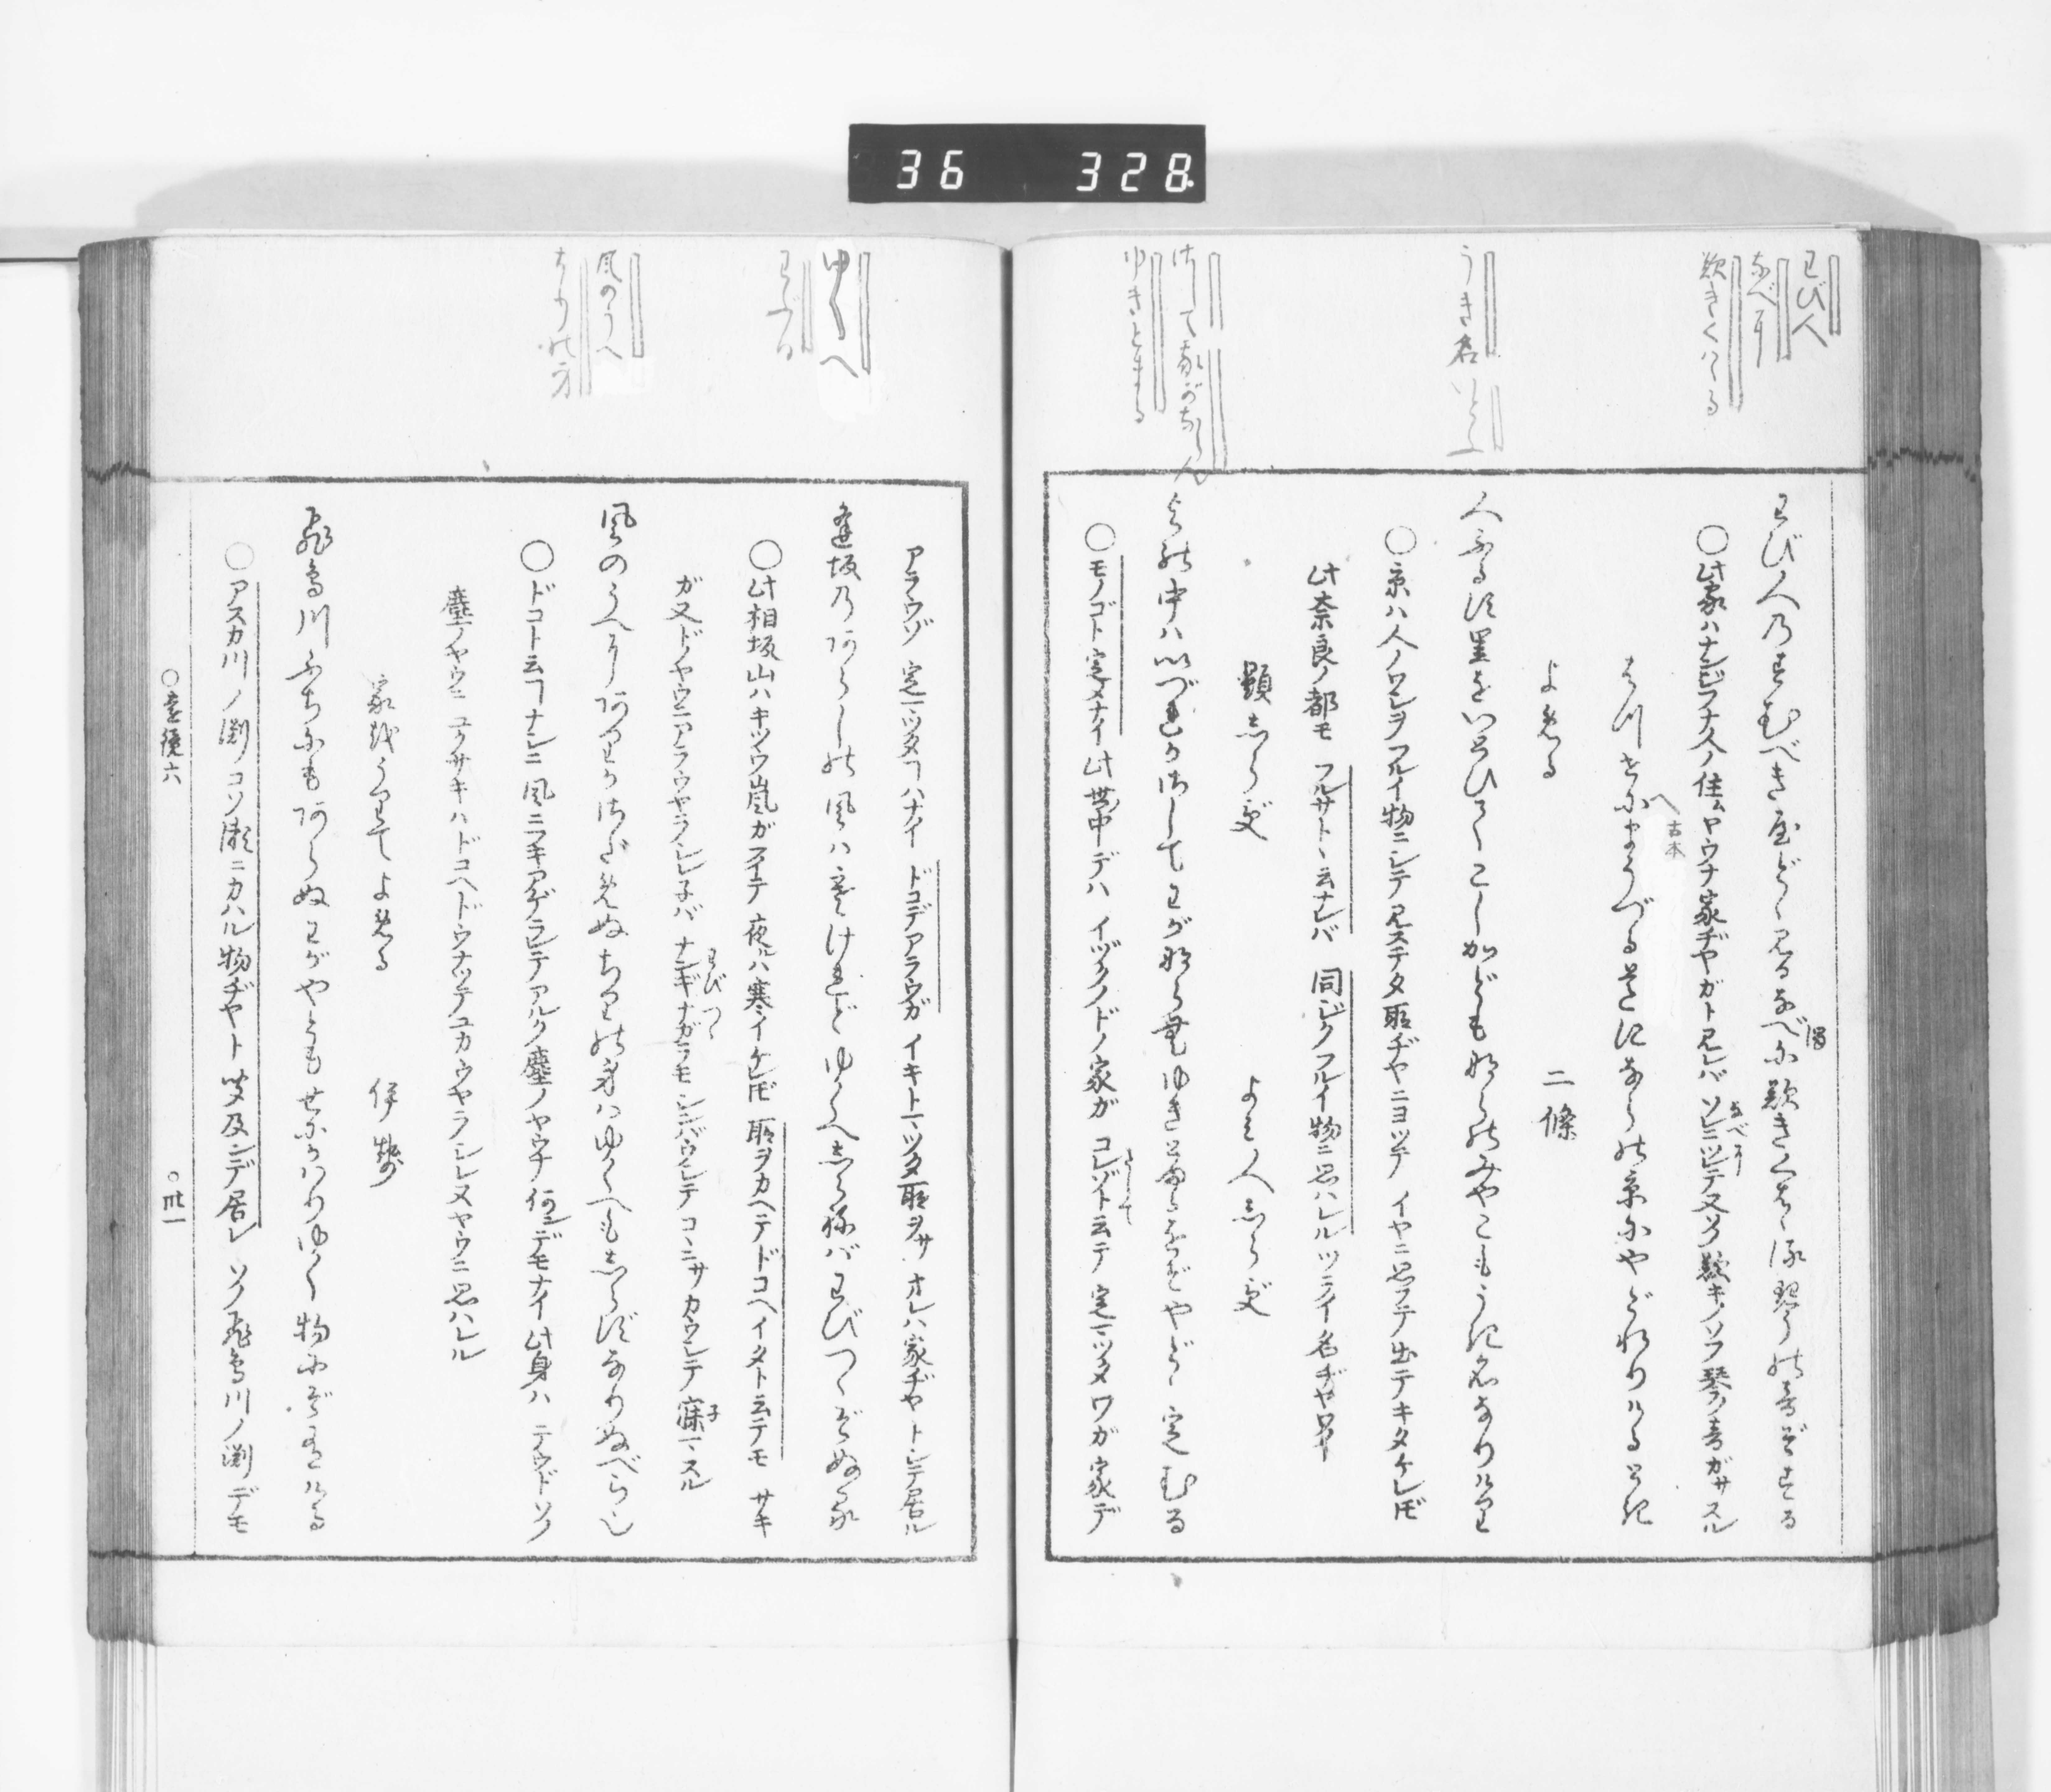 36 328
わび人
なべに
歎きくはゝる
うき名 いとふ
さして我がならん
ゆきとまる
わび人のすむべき屋どゝ見るなべに歎きくはゝる琴の音ぞする
○此家ハナンジフナ人ノ住ムヤウナ家ヂヤガト見レバ ソレニツレテ又ソノ歎キノソフ琴ノ音ガサスル
なべに
はつせにまうづる道にならの京にやどれりける時
へ古本
よめる 二條
人ふるす里をいとひてこしかども奈良のみやこもうき名なりけり
○京ハ人ノワシヲフルイ物ニシテ見ステタ所ヂヤニヨツテ イヤニ思フテ出テキタケレドモ
此奈良ノ都モ フルサトヽ云ナレバ 同ジクフルイ物ニ思ハレル ツライ名ヂヤワイ
題しらず よみ人しらず
よの中はいづれかさしてわがならむゆきとまるをぞやどゝ定むる
○モノゴト定メナイ此世中デハ イヅクノドノ家ガ コレゾト云テ 定マツタワガ家デ
さして
ゆくへ
わぶる
風のうへ
ちりの身
アラウゾ 定マツタヿハナイ ドコデアラウガ イキトマツタ所ヲサ オレハ家ヂヤトシテ居ル
逢坂のあらしの風はさむけれどゆくへしらねばわびつゝぞぬる
○此相坂山ハキツウ嵐ガフイテ 夜ルハ寒イケレドモ 所ヲカヘテドコヘイタト云テモ サキ
ガ又ドノヤウニアラウヤラシレ子バ ナンギナガラモ シンバウシテコヽニサ カウシテ寐マスル
わびつゝ
子
風のうへにありかさだめぬちりの身はゆくへもしらずなりぬべらなり
○ドコト云ヿナシニ 風ニフキアゲラレテアルク塵ノヤウナ 何ンデモナイ此身ハ テウドソノ
塵ノヤウニ ユクサキハドコヘドウナツテユカウヤラシレヌヤウニ思ハレル
家をうりてよめる 伊勢
飛鳥川ふちにもあらぬわがやどもせにかはりゆく物にぞありける
○アスカ川ノ渕コソ瀬ニカハル物ヂヤト 聞及ンデ居レ ソノ飛鳥川ノ渕デモ
○遠鏡六 ○卅一